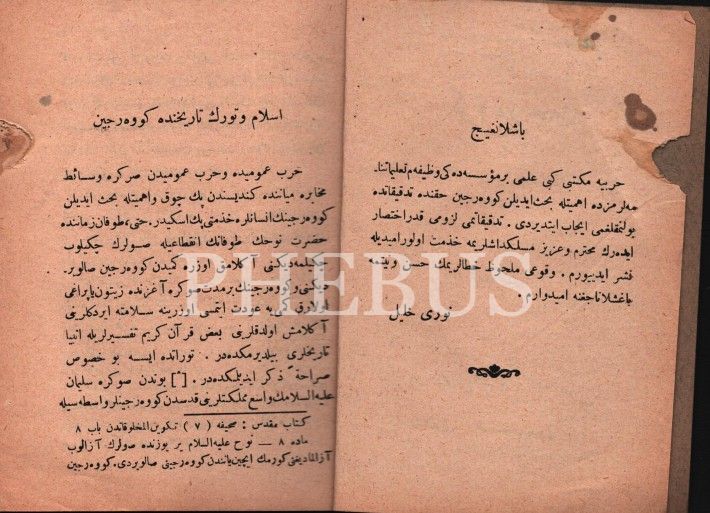 باشلانغيج
حربيه مكتبى كبى علمى بر مؤسسه ده كى وظيفه م تعليماتنا-
مه لرمزده اهميتله بحث ايديلن كووه رجين حقنده تدقيقاتده
بولنمقلغمى ايجاب ايتديردى . تدقيقاتمى لزومى قدر اختصار
ايده رك محترم وعزيز مسلكداشلريمه خدمت اولور اميديله
نشر ايدييورم . وقوعى ملحوظ خطالريمك حسن نيتمه
باغشلاناجغنه اميدوارم .
نورى خليل
اسلام و تورك تاريخنده كووه رجين
حرب عموميده وحرب عموميدن صوكره وسائط
مخابره مياننده كنديسندن پك چوق واهميتله بحث ايديلن
كووه رجينك انسانلره خدمتى پك اسكيدر . حتى ، طوفان زماننده
حضرت نوحك طوفانك انقطاعيله صولرك چكيلوب
چكيلمه ديكنى آكلامق اوزره كميدن كووه رجين صالوير-
ديكنى وكووه رجينك بر مدت صوكره آغزنده زيتون ياپراغى
اولارق كمى يه عودت ايتمسى اوزرينه سلامته ايردكلرينى
آكلامش اولدقلرينى بعض قرآن كريم تفسيرلريله انبيا
تاريخلرى بيلديرمكده در . توراتده ايسه بو خصوص
صراحةً ذكر ايديلمكده در . [*] بوندن صوكره سليمان
عليه السلامك واسع مملكتلرينى قدسدن كووه رجينلر واسطه سيله
كتاب مقدس : صحيفه ( ٧ ) تكوين المخلوقاتدن باب ٨
ماده ٨ — نوح عليه السلام ير يوزنده صولرك آزالوب
آزالماديغنى كورمك ايچين يانندن كووه رجينى صالويردى . كووه رجين
PHEBUS